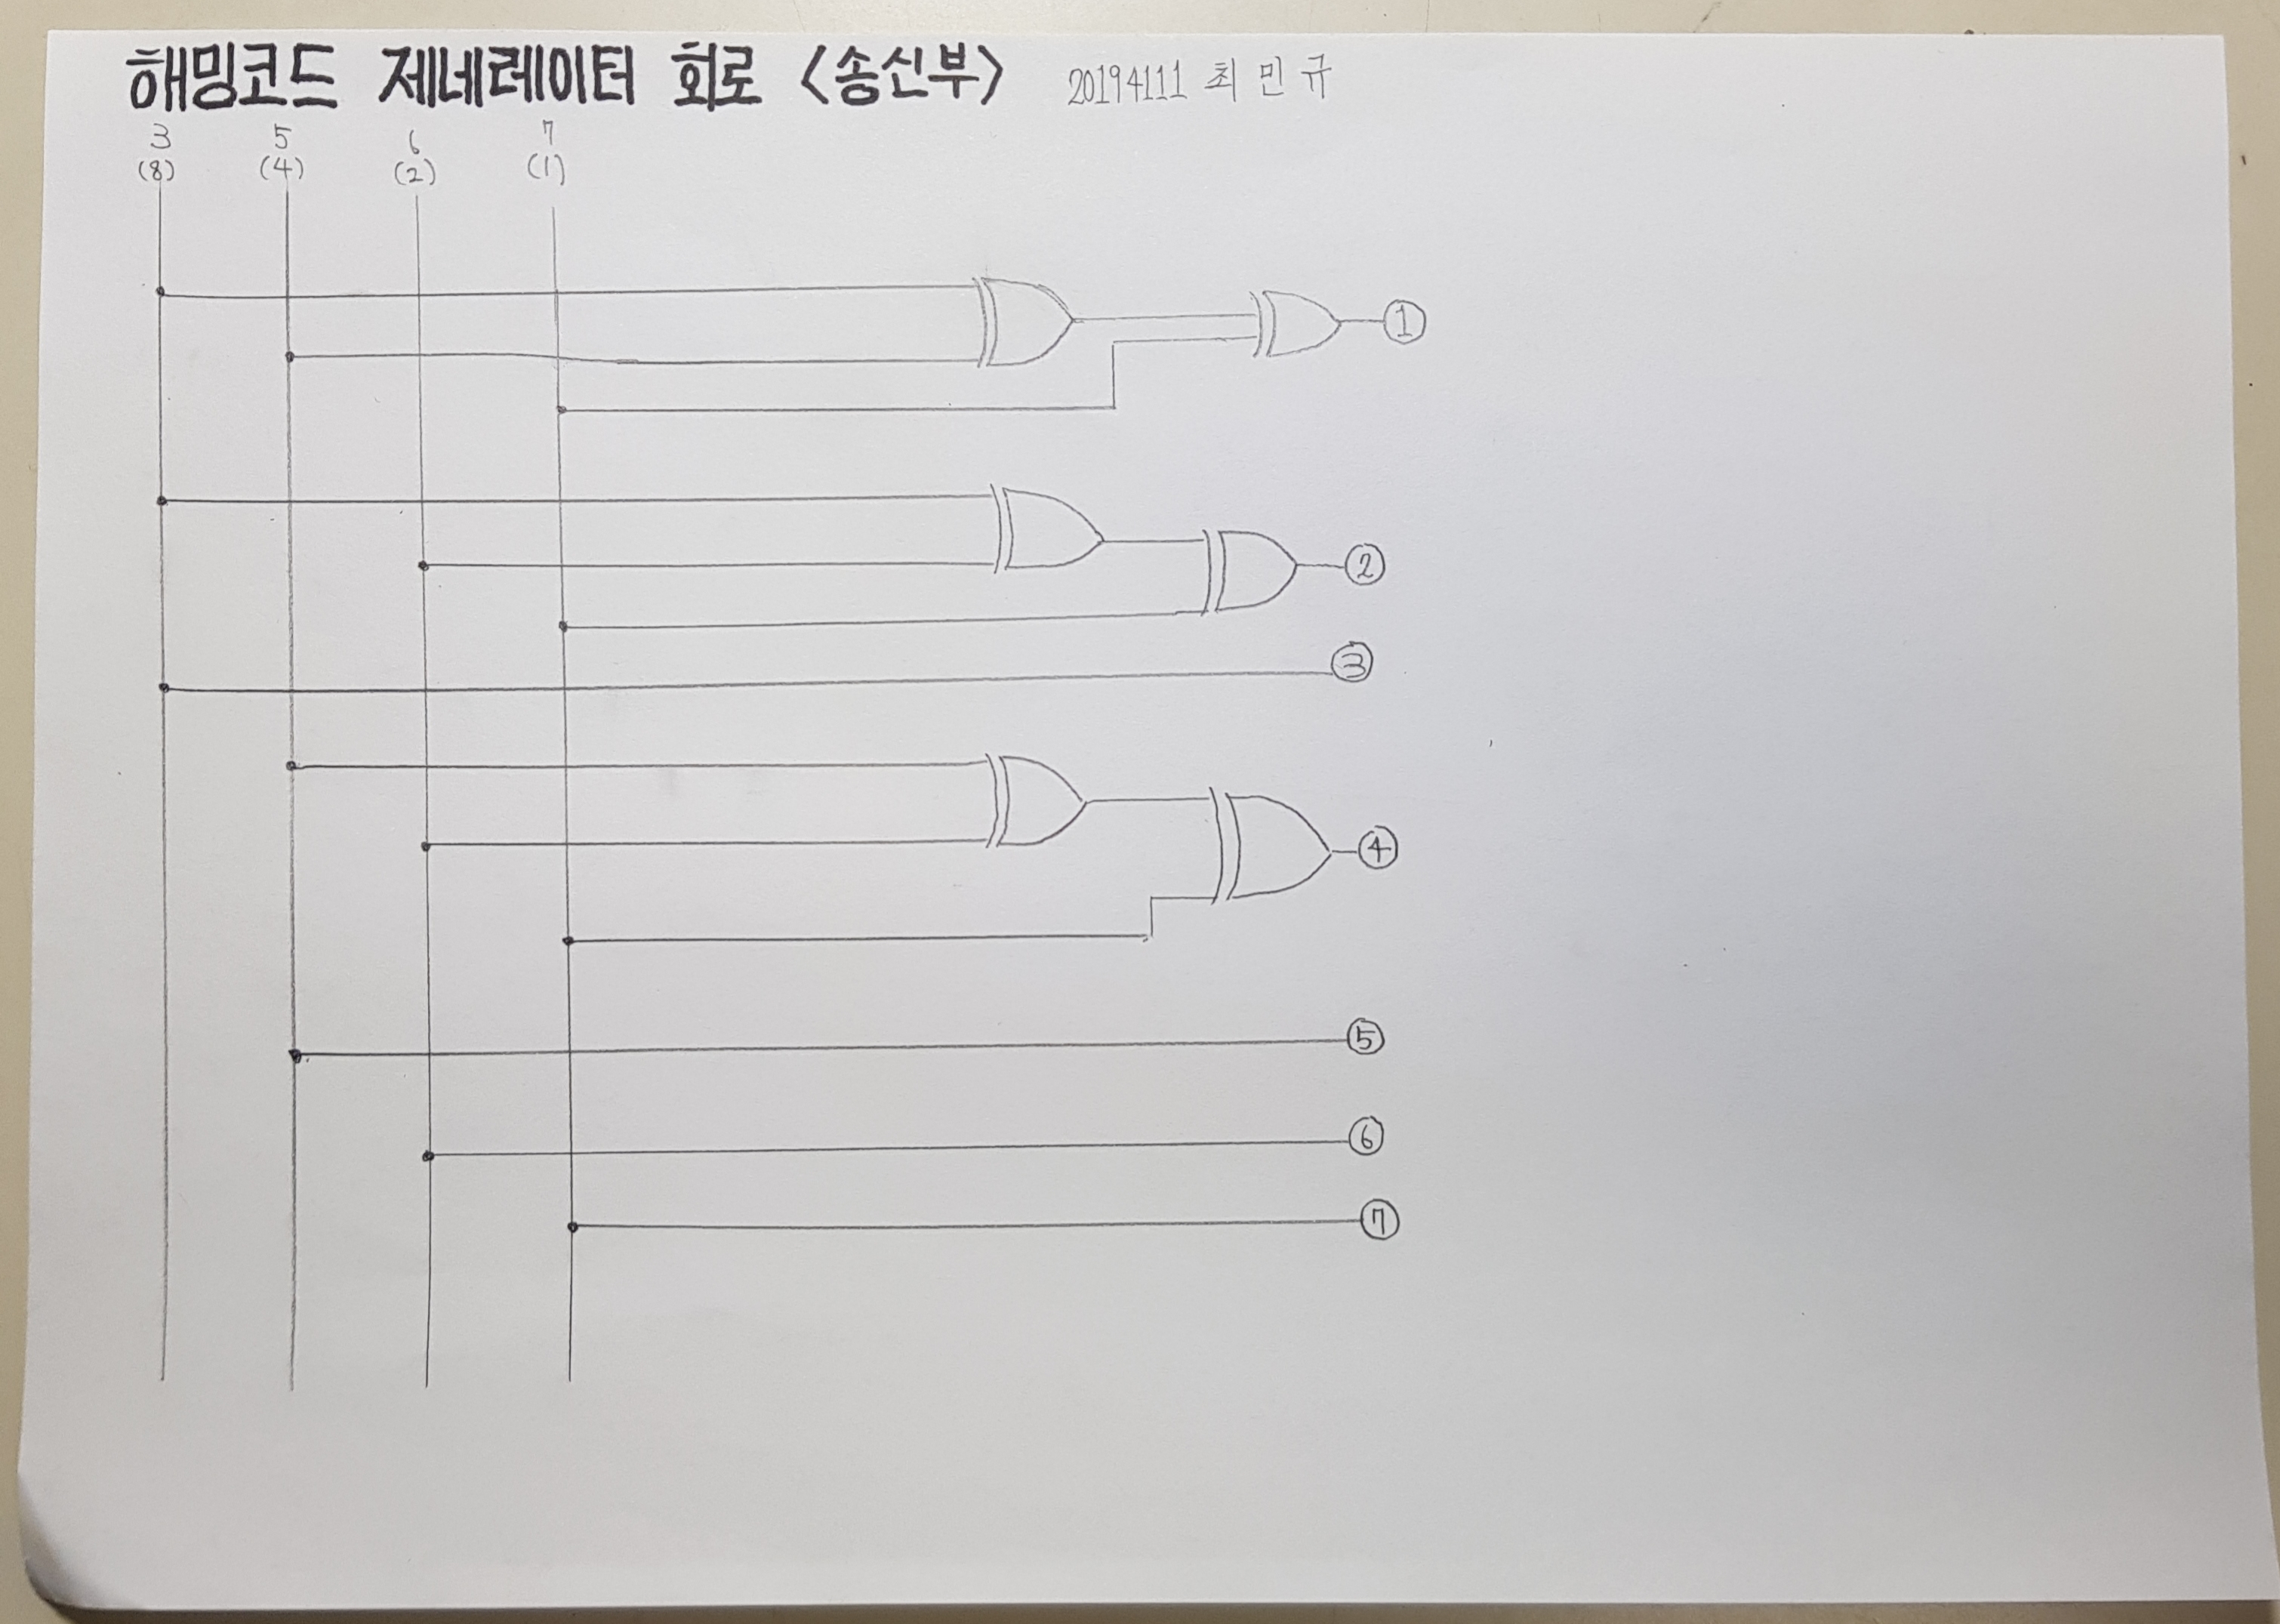 해밍코드 제네레이터 회로 <송신부> 20194111 최민규
3 5 6 7
(8) (4) (2) (1)
①
②
③
④
⑤
⑥
⑦